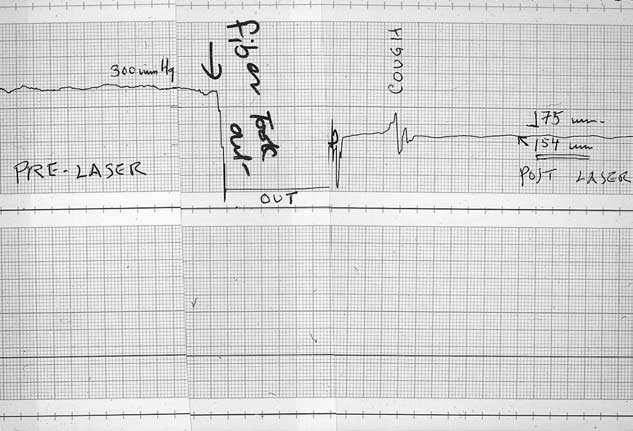 300 mm Hg
PRE-LASER
out
OUT
COUGH
175 mm
154 mm
POST LASER